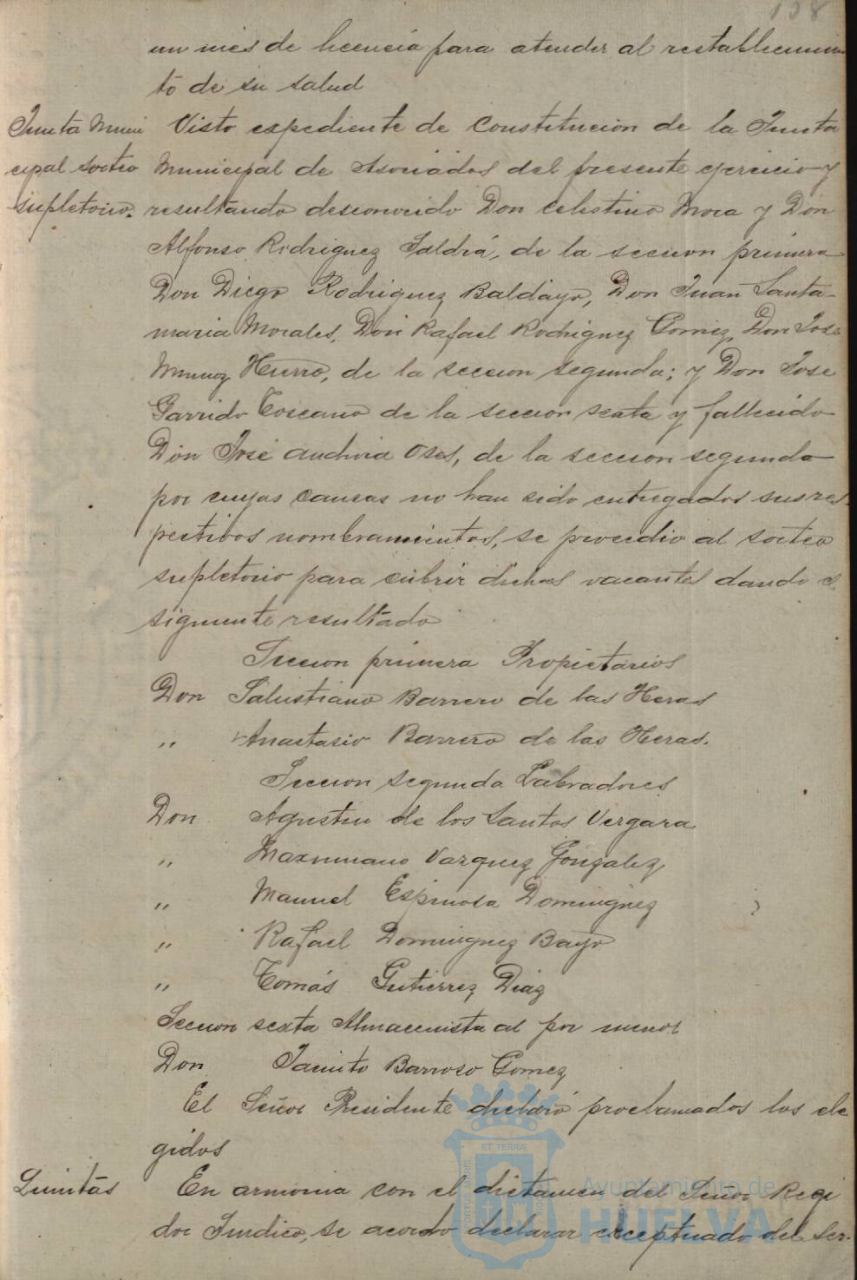 138
un mes de licencia para atender al restablecimien
to de su salud
Junta Muni
cipal sorteo
supletorio.
Visto expediente de Constitucion de la Junta
Municipal de Asociados del presente ejercicio y
resultando desconocido Don Celestino Mora y Don
Alfonso Rodriguez Saldrá, de la seccion primera
Don Diego Rodriguez Baldayo, Don Juan Santa-
maria Morales, Don Rafael Rodriguez Gomez, Don José
Munoz Hierro, de la seccion segunda; y Don Jose
Garrido Toscano de la seccion sexta y fallecido
Don José, de la seccion segunda
por cuyas causas no han sido entregados sus res
pectivos nombramientos, se procedio al sorteo
supletorio para cubrir dichas vacantes dando el
siguiente resultado
Seccion primera Propietarios
Don Salustiano Barrero de las Heras
" Anastasio Barrero de las Heras.
Seccion segunda Labradores
Don Agustin de los Santos Vergara
" Maximiano Vazquez Gonzalez
" Manuel Espinosa Dominguez
" Rafael Dominguez Bayo
" Tomás Gutierrez Diaz
Seccion sexta Almacenista al por menor
Don Jacinto Barroso Gomez
El Señor Presidente declaró proclamados los ele
gidos
Quintas
En armonia con el dictamen del Señor Regi
dor Sindico, se acordo declarar exceptuado del Ser-
Ayuntamiento de
HUELVA